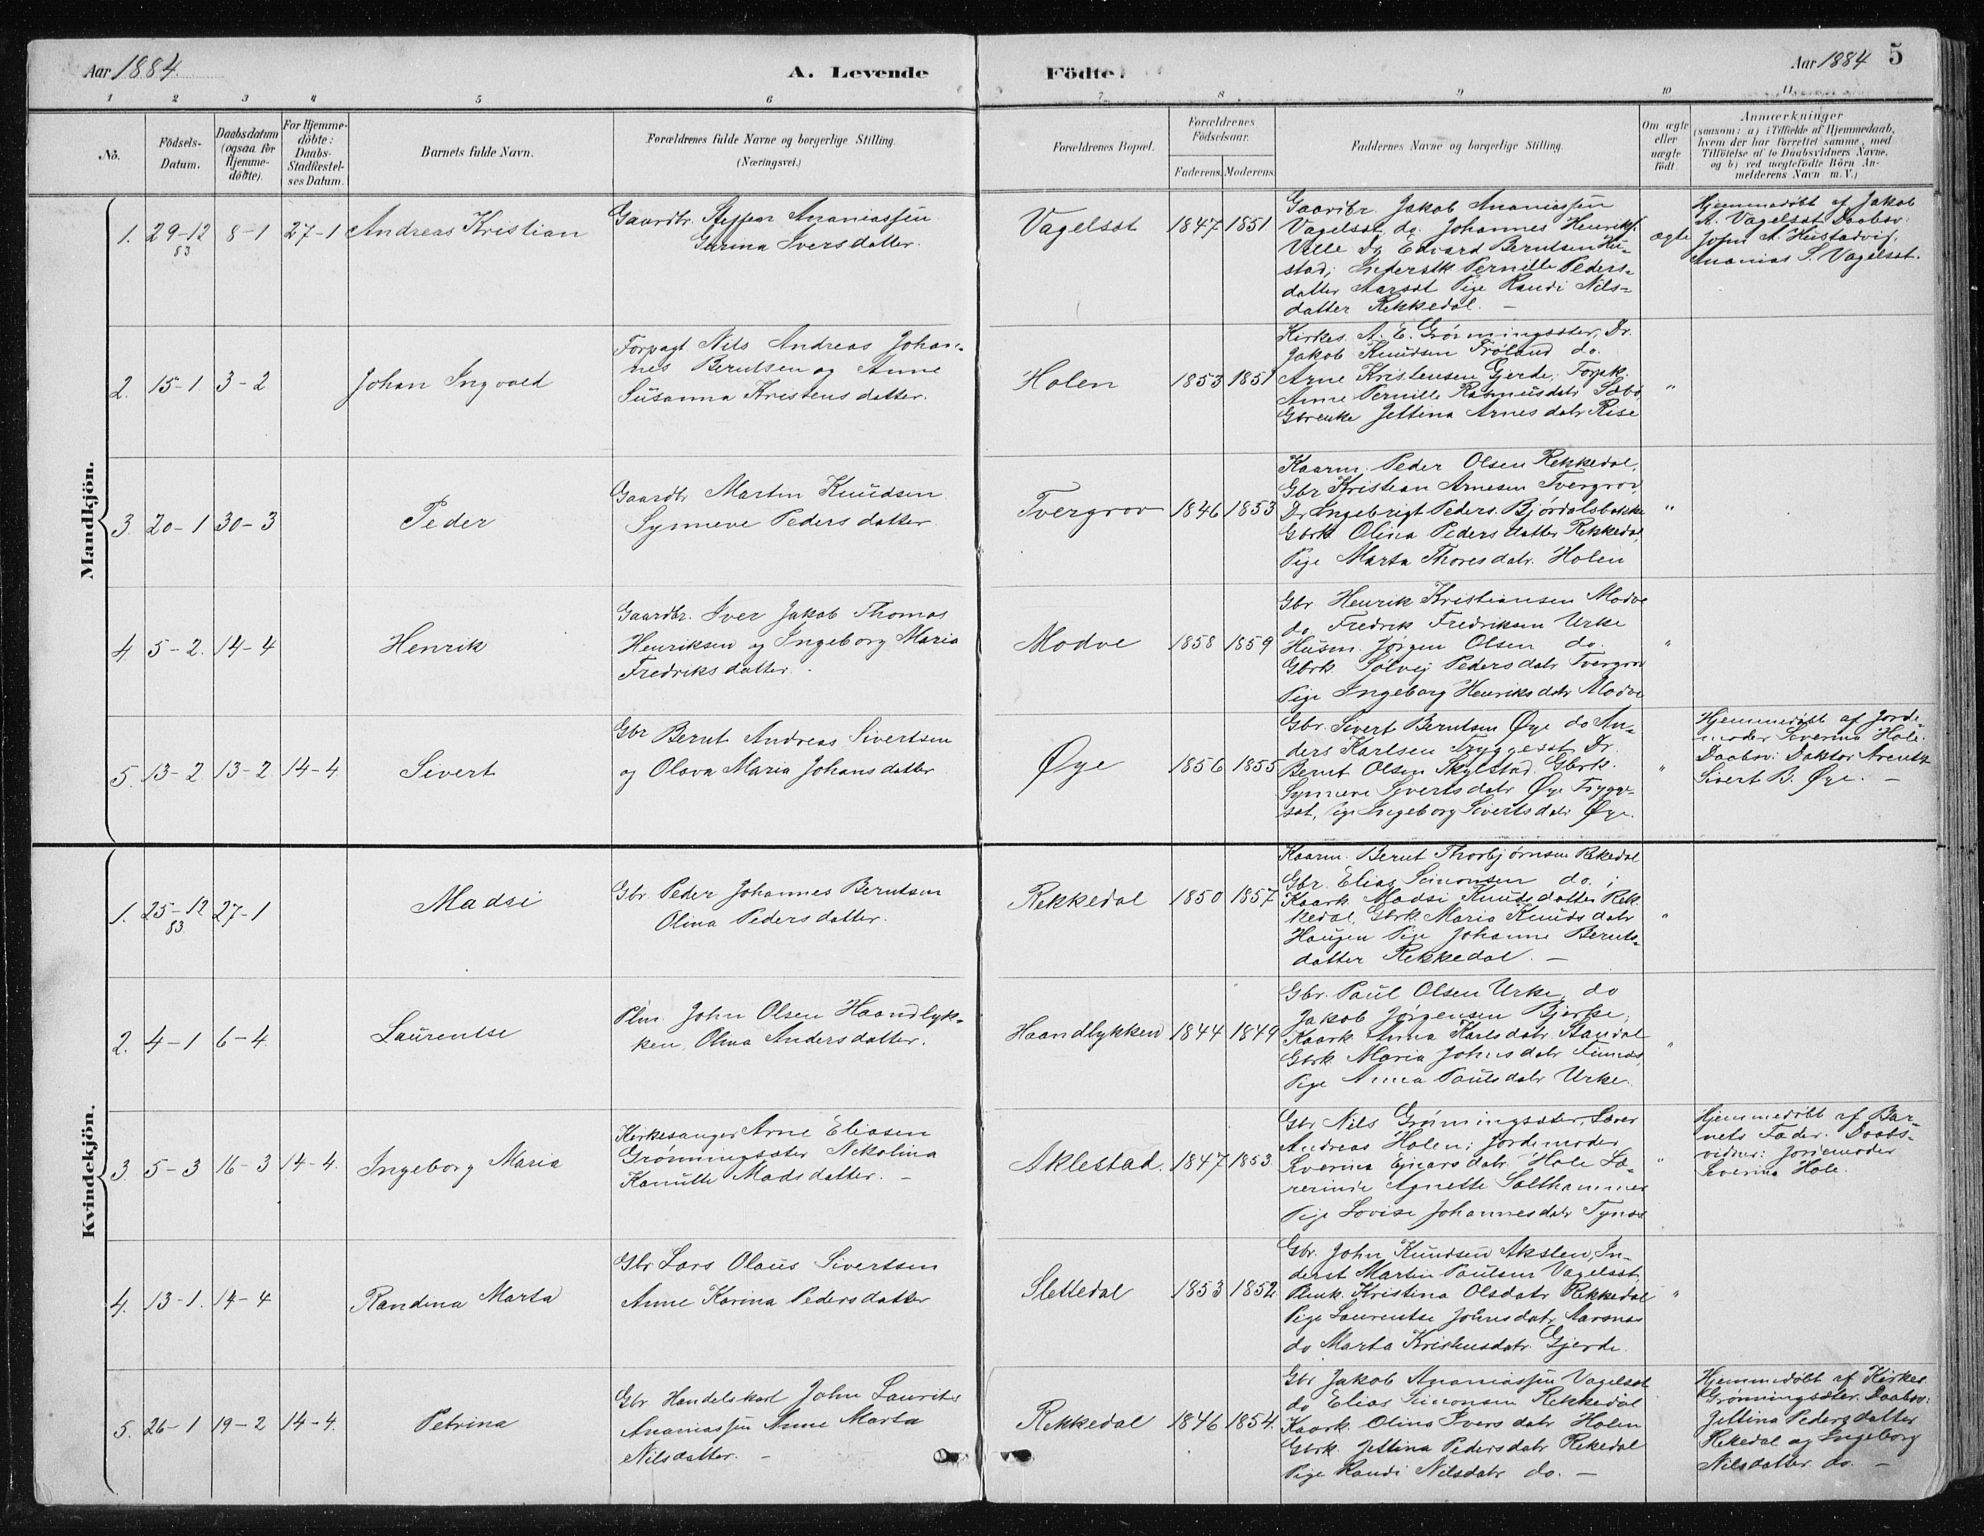 Aar 1884.
A. Levende Födte.
Aar 1884 5
1 2 3 4 5 6 7 8 9 10 11
No.
Födsels-
Datum.
Daabsdatum
(ogsaa for
Hjemme-
döbte).
For Hjemme-
döbte:
Daabs-
Stadfæstel-
ses Datum.
Barnets fulde Navn.
Forældrenes fulde Navne og borgerlige Stilling.
(Næringsvei.)
Forældrenes Bopæl.
Forældrenes
Födselsaar.
Faderens. Moderens.
Faddernes Navne og borgerlige Stilling.
Om ægte
eller
uægte
födt.
Anmærkninger
(saasom: a) i Tilfælde af Hjemmedaab,
hvem der har forrettet samme, med
Tilföielse af to Daabsvidners Navne,
og b) ved uægtefödte Börn An-
melderens Navn m. V.)
Mandkjön.
1. 29-12 83 8-1 27-1 Andreas Kristian
Gaardbr. Steffen Ananiassen
Garina Iversdatter.
Vagelsæt 1847 1851
Gaardbr. Jakob Ananiassen
Vagelsæt do. Johannes Henriks.
Ville Do Edvard Berntsen Hu-
stad; Inderstk Pernille Peders-
datter Aarsæt Pige Randi Nils-
datter Rekkedal. —
ægte
Hjemmedöbt af Jakob
A. Vagelsæt Daabsv:
John A. Hustadvig,
Ananias S. Vagelsæt.
2. 15-1 3-2 Johan Ingvald
Forpagt. Nils Andreas Johan-
nes Berntsen og Anne
Susanna Kristensdatter.
Holen 1853 1851
Kirkes. A. E. Grønningsæter, Dr.
Jakob Knudsen Frøland do.
Arne Kristensen Gjerde; Forpk.
Anne Pernille Rasmusdatr Sæbö
Gbrenke Jettina Arnesdatr Rise
"
3. 20-1 30-3 Peder
Gaardbr Martin Knudsen
Synneve Pedersdatter
Tvergrov 1846 1853
Kaarm. Peder Olsen Rekkedal,
Gbr Kristian Arnesen Tvergrov,
Dr Ingebrigt Peders. Bjørdalsbakke
Gbrk Olina Pedersdatter Rekkedal,
Pige Marta Thoresdatr. Holen
"
4. 5-2. 14-4 Henrik
Gaardbr. Iver Jakob Thomas
Henriksen og Ingeborg Maria
Fredriksdatter.
Modve 1858 1859
Gbr Henrik Kristiansen Modve
do Fredrik Fredriksen Urke
Husm. Jørgen Olsen do.
Gbrk. Sølvej Pedersdatr Tvergrov
Pige Ingeborg Henriksdatr Modve
"
5. 13-2 13-2 14-4 Sivert
Gbr Bernt Andreas Sivertsen
og Olava Maria Johansdatter
Øye 1856 1855
Gbr. Sivert Berntsen Øye do An-
ders Karlsen Tryggestt Dr.
Bernt Olsen Skylstad. Gbrk.
Synneve Sivertsdatr Øye Trygge-
sæt, Pige Ingeborg Sivertsdatr Øye.
"
Hjemmedöbt af Jorde-
moder Severina Hole.
Daabsv: Doktor Arentz
Sivert B. Øye. —
Kvindekjön.
1. 25-12 83 27-1 Madsi
Gbr Peder Johannes Berntsen
Olina Pedersdatter.
Rekkedal 1850 1857
Kaarm. Bernt Thorbjørnsen Rekedal
Gbr. Elias Simonsen do.;
Kaark. Madsi Knudsdatter Rek-
kedal, Gbrk. Maria Knudsdatr
Haugen Pige Johanne Bernts-
datter Rekkedal. —
"
2. 4-1 6-4. Laurentse
Plm. John Olsen Haandlyk-
ken, Olina Andersdatter.
Haandlykken 1844 1849
Gbr. Paul Olsen Urke, do
Jakob Jørgensen Bjerke;
Kaark. Anna Karlsdatr Standal
Gbrk. Maria Johnsdatr Finnes,
Pige Anna Paulsdatr Urke.
"
3. 5-3 16-3 14-4. Ingeborg Maria
Kirkesanger Arne Eliasen
Grønningsæter Nikolina
Kanutte Madsdatter. —
Aklestad. 1847 1853
Gbr Nils Grønningsæter, Lærer
Andreas Holen; Jordemoder
Severina Ejnarsdatr Hole Læ-
rerinde Agnette Salthammer
Pige Lovise Johannesdatr Tynes
"
Hjemmedöbt af Bar-
nets Fader. Daabs-
vidner: Jordemoder
Severina Hole.
4. 13-1. 14-4 Randina Marta
Gbr Lars Olaus Sivertsen
Anne Karina Pedersdatter
Slettedal 1853 1852.
Gbr. John Knudsen Akslen, In-
derst Martin Paulsen Vagelsæt,
Plmk. Kristina Olsdatr Rekkedal
Pige Laurentse Johnsdatr Aarsnes
do Marta Kristensdatr. Gjerde.
"
5. 26-1 19-2 14-4. Petrina
Gbr Handelskarl John Laurits
Ananiassen Anne Marta
Nilsdatter. —
Rekkedal 1846 1854.
Gbr Jakob Ananiassen Vagelsæt
do Elias Simonsen Rekkedal
Kaark. Olina Iversdatr Holen
Gbrk. Jettina Pedersdatr Rekedal
Pige Randi Nilsdatr do. —
Hjemmedöbt af Kirkes.
Grønningsæter. Daabsv:
Jettina Pedersdatter
Rekedal og Ingeborg
Nilsdatter do. —